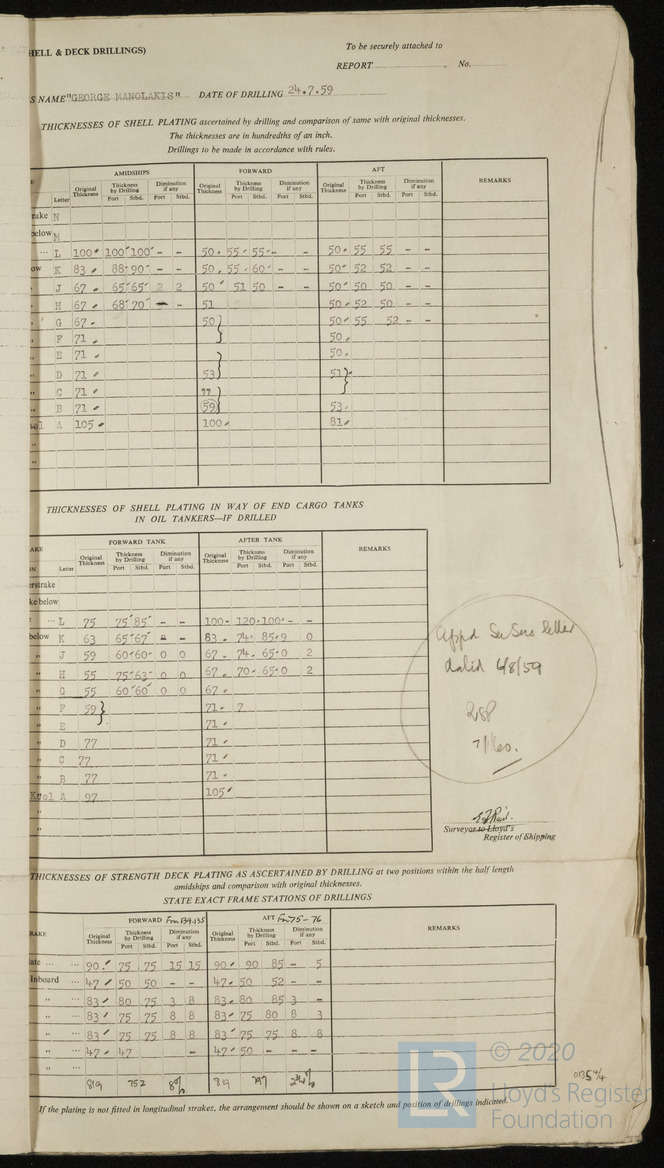 HELL & DECK DRILLINGS)
To be securely attached to
REPORT No.
S NAME "GEORGE MANOLAKIS" DATE OF DRILLING 24.7.59
THICKNESSES OF SHELL PLATING ascertained by drilling and comparison of same with original thicknesses.
The thicknesses are in hundredths of an inch.
Drillings to be made in accordance with rules.
AMIDSHIPS FORWARD AFT REMARKS
Letter Original Thickness Thickness by Drilling Port Stbd. Diminution if any Port Stbd. Original Thickness Thickness by Drilling Port Stbd. Diminution if any Port Stbd. Original Thickness Thickness by Drilling Port Stbd. Diminution if any Port Stbd.
rake N
below M
... L 100 100 100 - - 50 55 55 - - 50 55 55 - -
ow K 83 88 90 - - 50 55 60 - - 50 52 52 - -
" J 67 65 65 2 2 50 51 50 - - 50 50 50 - -
" H 67 68 70 - - 51 50 52 50 - -
" G 67 50 50 55 52 - -
" F 71 50
" E 71 50
" D 71 53 51
" C 71 "
" B 71 59 53
eel A 105 100 81
"
"
THICKNESSES OF SHELL PLATING IN WAY OF END CARGO TANKS
IN OIL TANKERS—IF DRILLED
FORWARD TANK AFTER TANK REMARKS
AKE Letter Original Thickness Thickness by Drilling Port Stbd. Diminution if any Port Stbd. Original Thickness Thickness by Drilling Port Stbd. Diminution if any Port Stbd.
erstrake
ke below
" ... L 75 75 85 - - 100 120 100 - -
below K 63 65 67 - - 83 74 85 9 0
" J 59 60 60 0 0 67 74 65 0 2
" H 55 75 63 0 0 67 70 65 0 2
" G 55 60 60 0 0 67
" F 59 71 7
" E 71
" D 77 71
" C 77 71
" B 77 71
Keel A 97 105
"
"
appd See Sers letter
dated 6/8/59
RSP
Surveyor to Lloyd's
Register of Shipping
THICKNESSES OF STRENGTH DECK PLATING AS ASCERTAINED BY DRILLING at two positions within the half length
amidships and comparison with original thicknesses.
STATE EXACT FRAME STATIONS OF DRILLINGS
FORWARD Frm 134-135 AFT Frm 75-76 REMARKS
RAKE Original Thickness Thickness by Drilling Port Stbd. Diminution if any Port Stbd. Original Thickness Thickness by Drilling Port Stbd. Diminution if any Port Stbd.
ate ... ... 90 75 75 15 15 90 90 85 - 5
Inboard ... 47 50 50 - - 47 50 52 - -
" ... 83 80 75 3 8 83 80 85 3 -
" ... 83 75 75 8 8 83 75 80 8 3
" ... 83 75 75 8 8 83 75 75 8 8
" ... 47 47 - 47 50 - - -
"
819 752 8% 819 797
If the plating is not fitted in longitudinal strakes, the arrangement should be shown on a sketch and position of drillings indicated.
LR
© 2020
Lloyd's Register
Foundation